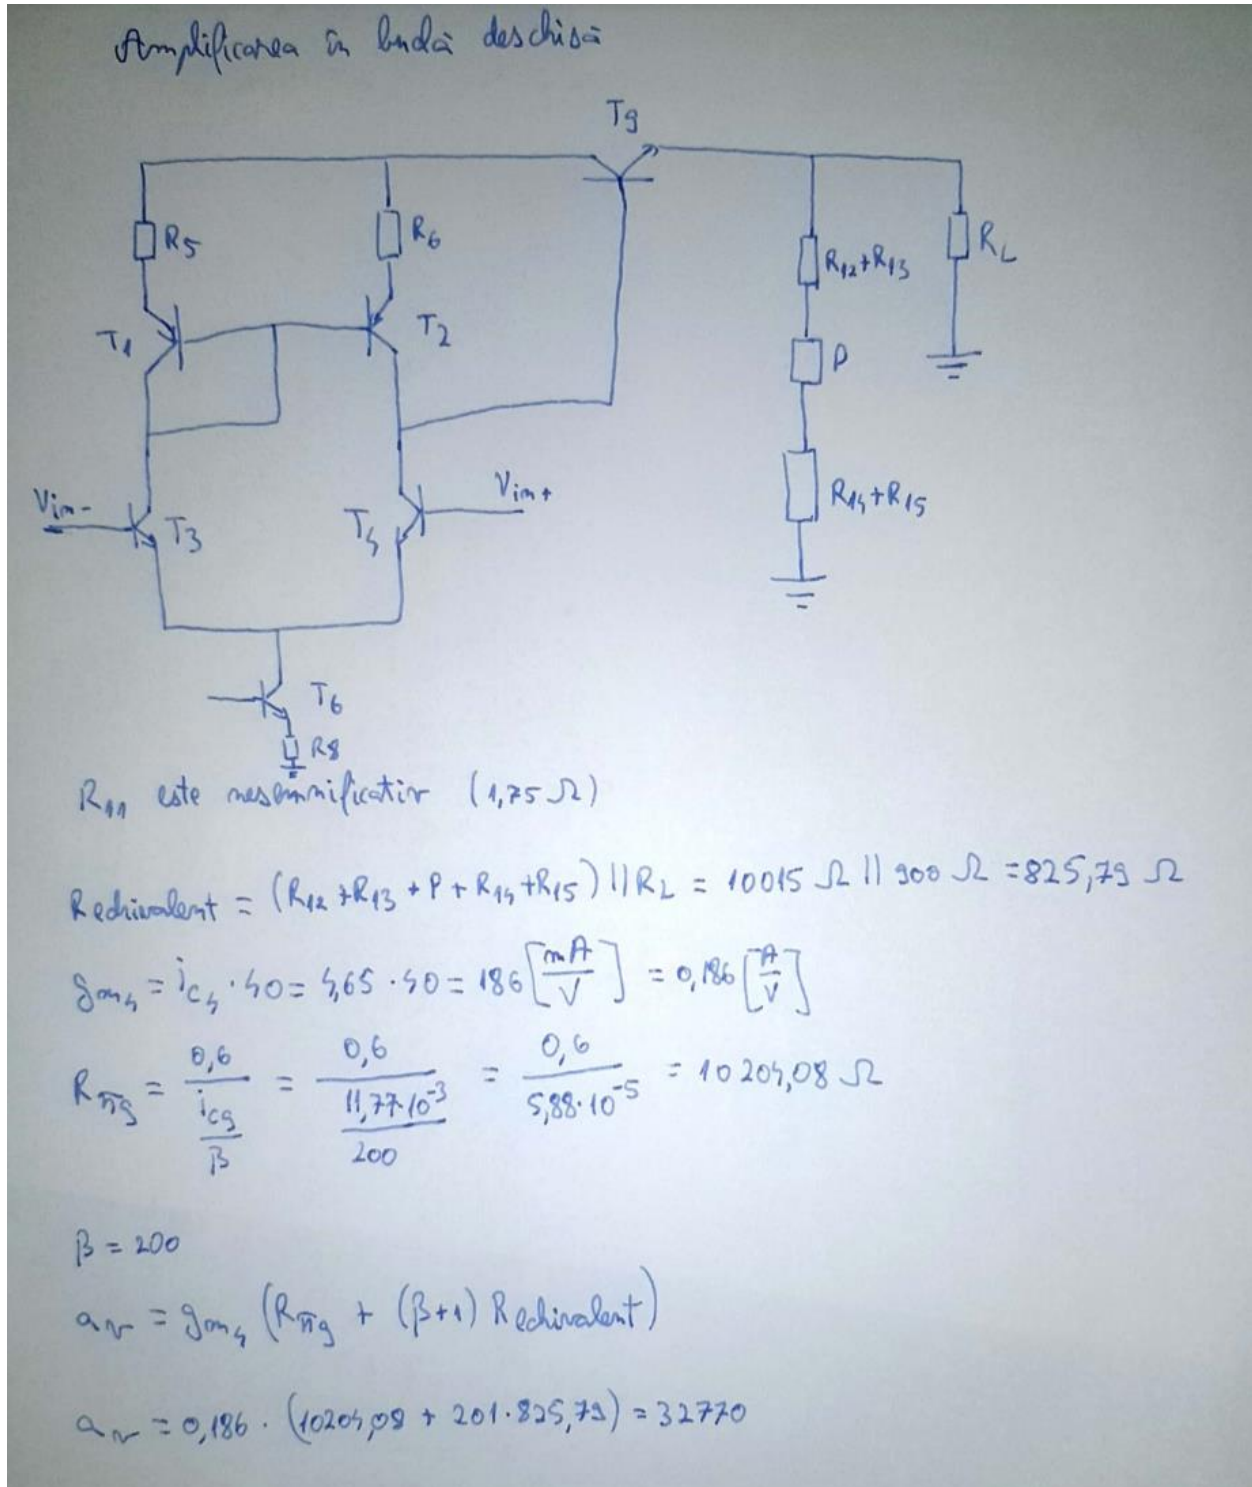 Amplificarea în buclă deschisă
T9
R5
R6
R12+R13
RL
T1
T2
P
Vim-
Vim+
T3
T4
R14+R15
T6
R8
R11 este nesemnificativ (1,75 Ω)
Rechivalent = (R12 + R13 + P + R14 + R15) || RL = 10015 Ω || 900 Ω = 825,79 Ω
gm4 = ic4 · 40 = 4,65 · 40 = 186 [mA/V] = 0,186 [A/V]
Rπ9 = 0,6 / (ic9/β) = 0,6 / (11,77·10^-3/200) = 0,6 / 5,88·10^-5 = 10204,08 Ω
β = 200
av = gm4 (Rπ9 + (β+1) Rechivalent)
av = 0,186 · (10204,08 + 201·825,79) = 32770